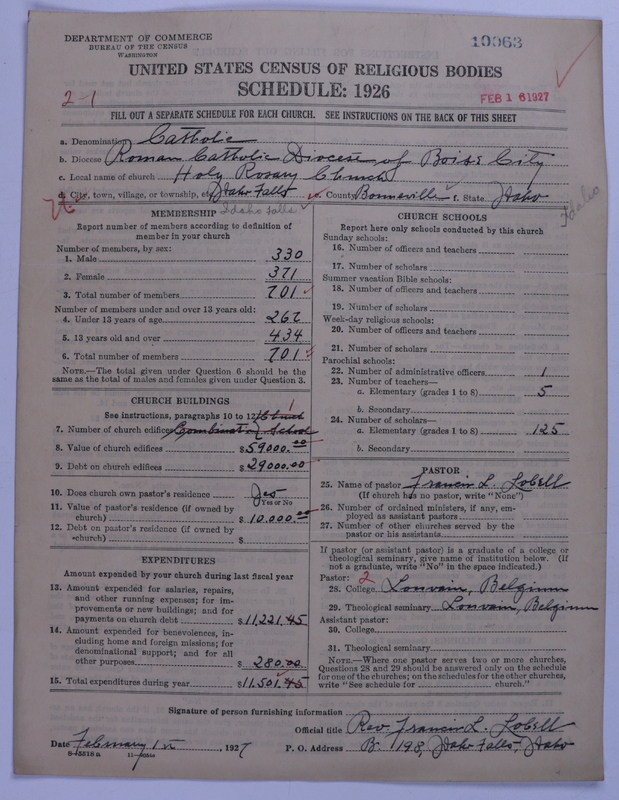 DEPARTMENT OF COMMERCE
BUREAU OF THE CENSUS
WASHINGTON
10963
UNITED STATES CENSUS OF RELIGIOUS BODIES
SCHEDULE: 1926
2-1
FEB 16 1927
FILL OUT A SEPARATE SCHEDULE FOR EACH CHURCH. SEE INSTRUCTIONS ON THE BACK OF THIS SHEET
a. Denomination Catholic
b. Diocese Roman Catholic Diocese of Boise City
c. Local name of church Holy Rosary Church
d. City, town, village, or township, etc. Idaho Falls e. County Bonneville f. State Idaho
Idaho Falls
Idaho
MEMBERSHIP
Report number of members according to definition of
member in your church
Number of members, by sex:
1. Male 330
2. Female 371
3. Total number of members 701
Number of members under and over 13 years old:
4. Under 13 years of age 267
5. 13 years old and over 434
6. Total number of members 701
NOTE.—The total given under Question 6 should be the
same as the total of males and females given under Question 3.
CHURCH BUILDINGS
1
See instructions, paragraphs 10 to 12 Church
7. Number of church edifices Combination School
8. Value of church edifices $59000.00
9. Debt on church edifices $29000.00
10. Does church own pastor's residence Yes
Yes or No
11. Value of pastor's residence (if owned by
church) $10.000.00
12. Debt on pastor's residence (if owned by
church) $
EXPENDITURES
Amount expended by your church during last fiscal year
13. Amount expended for salaries, repairs,
and other running expenses; for im-
provements or new buildings; and for
payments on church debt $11,221.45
14. Amount expended for benevolences, in-
cluding home and foreign missions; for
denominational support; and for all
other purposes $280.00
15. Total expenditures during year $11,501.45
CHURCH SCHOOLS
Report here only schools conducted by this church
Sunday schools:
16. Number of officers and teachers
17. Number of scholars
Summer vacation Bible schools:
18. Number of officers and teachers
19. Number of scholars
Week-day religious schools:
20. Number of officers and teachers
21. Number of scholars
Parochial schools:
22. Number of administrative officers 1
23. Number of teachers—
a. Elementary (grades 1 to 8) 5
b. Secondary
24. Number of scholars—
a. Elementary (grades 1 to 8) 125
b. Secondary
PASTOR
25. Name of pastor Francis L. Lobell
(If church has no pastor, write "None")
26. Number of ordained ministers, if any, em-
ployed as assistant pastors
27. Number of other churches served by the
pastor or his assistants
If pastor (or assistant pastor) is a graduate of a college or
theological seminary, give name of institution below. (If
not a graduate, write "No" in the space indicated.)
Pastor: 2
28. College Louvain, Belgium
29. Theological seminary Louvain, Belgium
Assistant pastor:
30. College
31. Theological seminary
NOTE.—Where one pastor serves two or more churches,
Questions 28 and 29 should be answered only on the schedule
for one of the churches; on the schedules for the other churches,
write "See schedule for church."
Signature of person furnishing information
Official title Rev. Francis L. Lobell
Date February 1st, 1927 P. O. Address B. 1198, Idaho Falls, Idaho